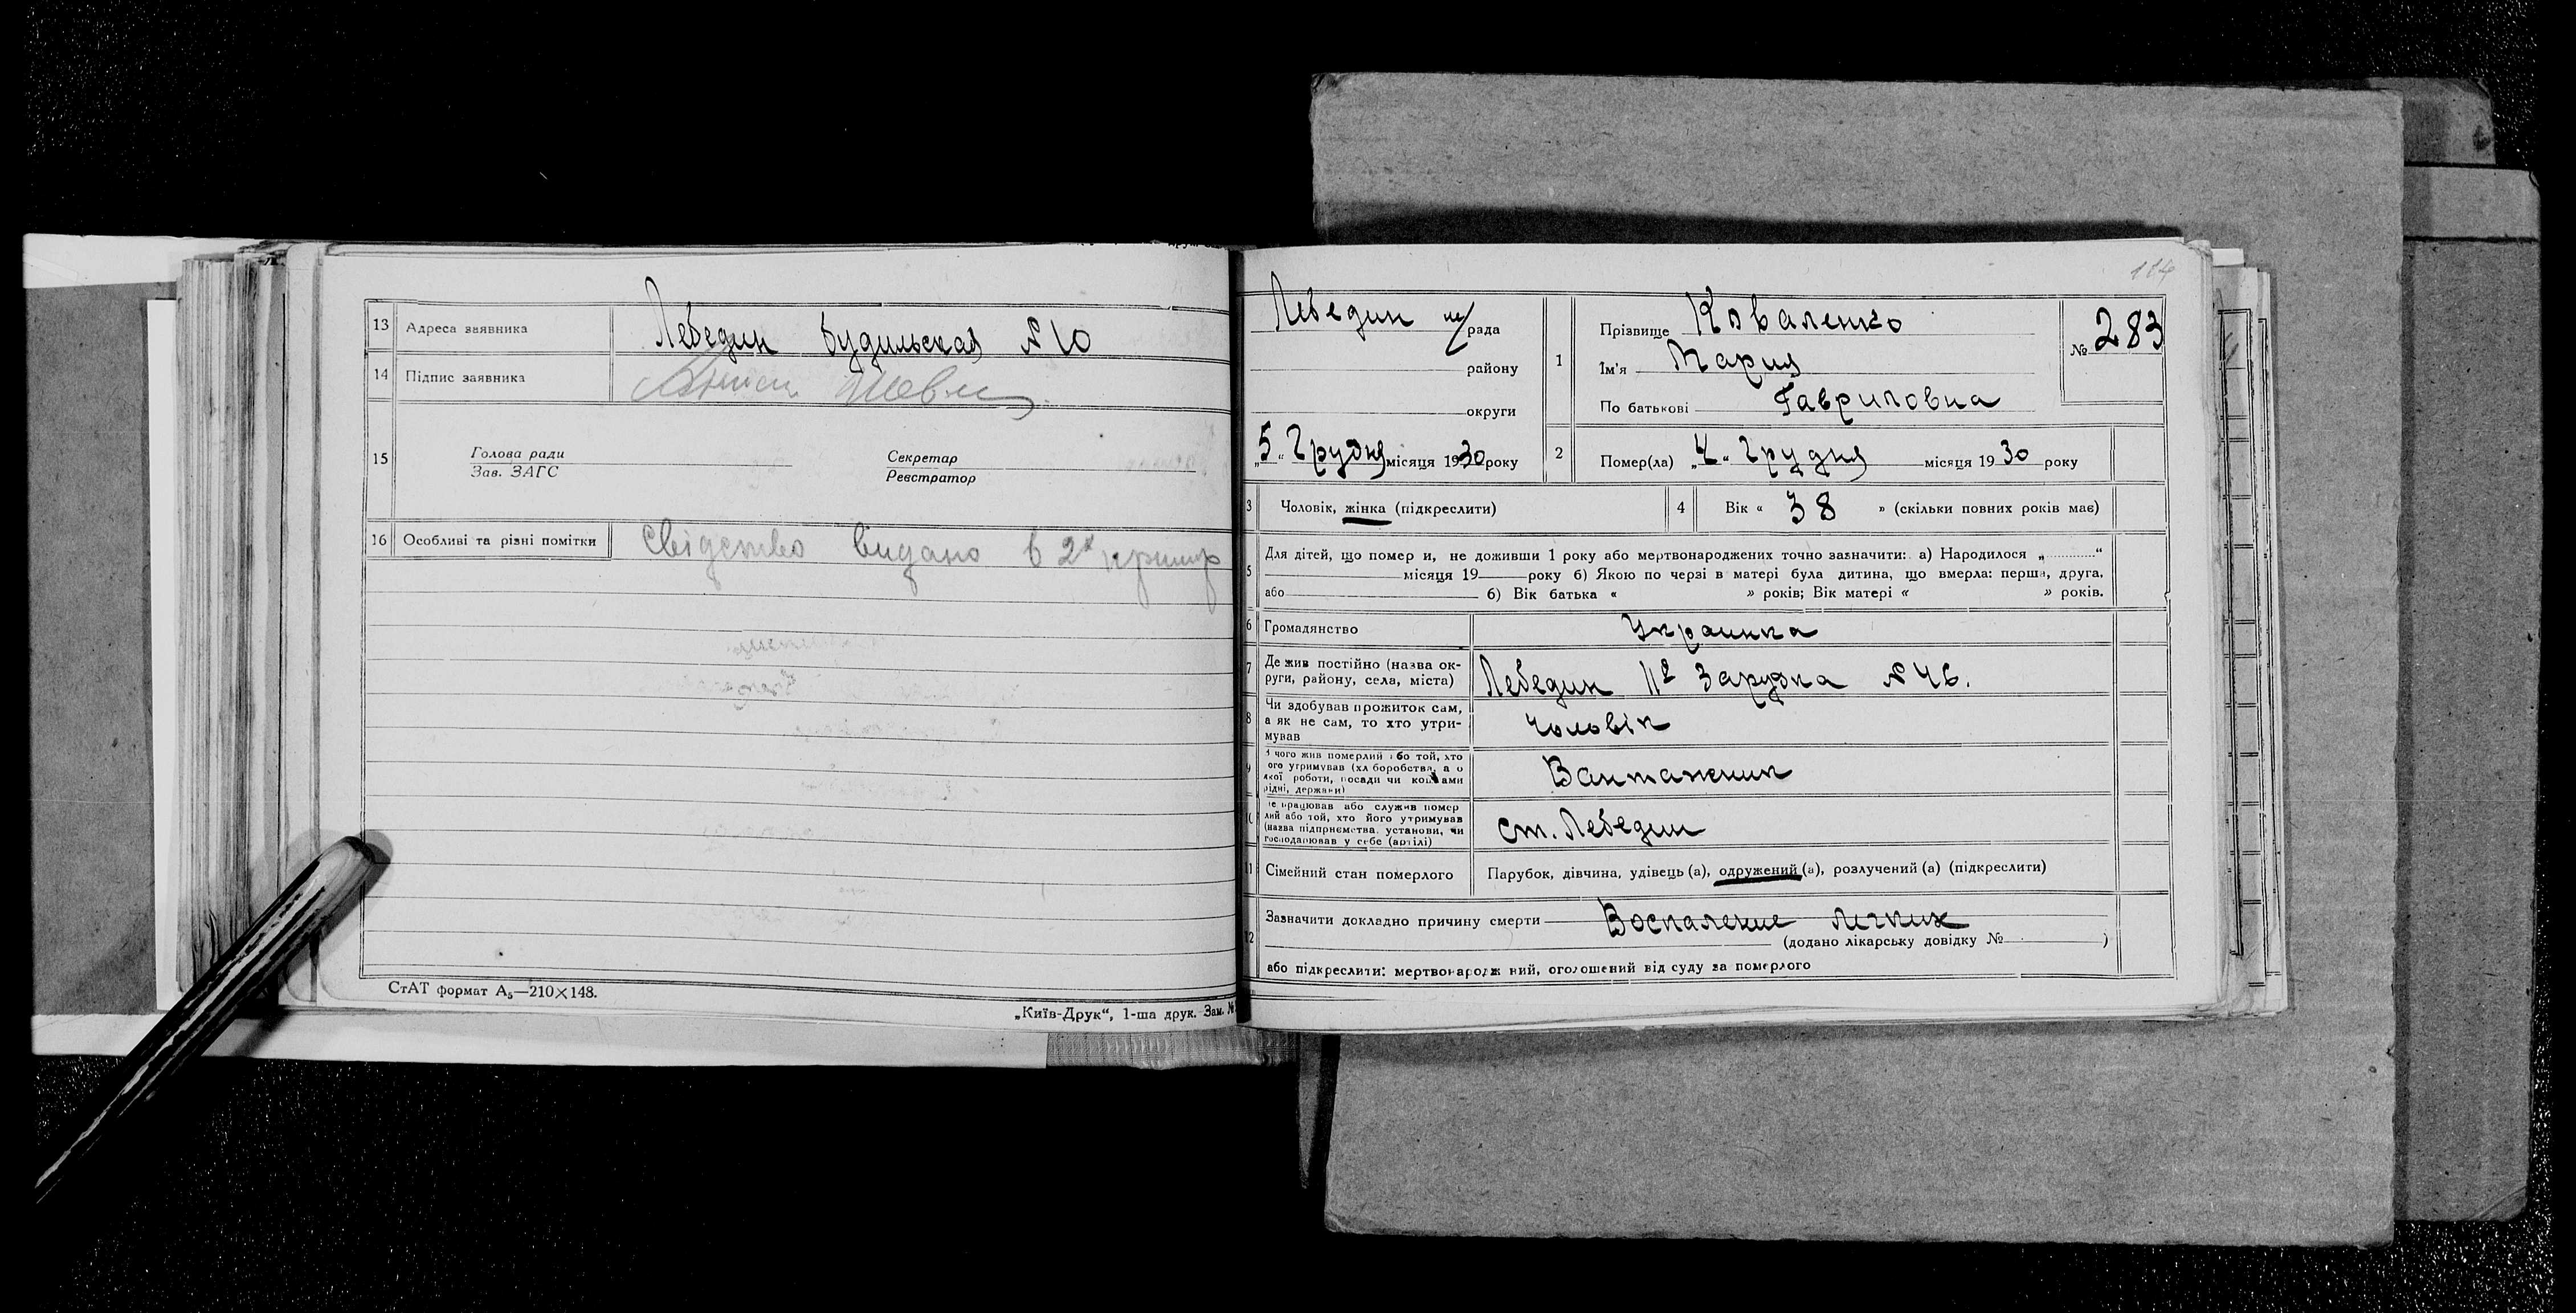 13 Адреса заявника Лебедин Будильская №10
14 Підпис заявника
15 Голова ради
Зав. ЗАГС
Секретар
Реєстратор
16 Особливі та різні помітки Свідєтво видано в 2х
СтАТ формат А₅—210×148.
„Київ-Друк“, 1-ша друк. Зам. №
114
Лебедин м/рада
району
округи
„5“ Грудня місяця 1930 року
1 Прізвище Коваленко
Ім'я Мария
По батькові Гавриловна
№ 283
2 Помер(ла) „4“ Грудня місяця 1930 року
3 Чоловік, жінка (підкреслити)
4 Вік « 38 » (скільки повних років має)
5 Для дітей, що помер и, не доживши 1 року або мертвонароджених точно зазначити: а) Народилося „ “
місяця 19 року б) Якою по черзі в матері була дитина, що вмерла: перша, друга,
або б) Вік батька « » років; Вік матері « » років.
6 Громадянство Украинка
7 Де жив постійно (назва ок-
руги, району, села, міста) Лебедин Зарудка №46.
8 Чи здобував прожиток сам,
а як не сам, то хто утри-
мував Чоловік
чого жив померлий або той, хто
ого утримував (хліборобства, а о
якої роботи, посади чи коштами
рідні, держави) Вантажник
е працював або служив помер
лий або той, хто його утримував
(назва підприємства, установи, чи
господарював у себе (артілі) ст. Лебедин
11 Сімейний стан померлого Парубок, дівчина, удівець (а), одружений (а), розлучений (а) (підкреслити)
12 Зазначити докладно причину смерти Воспаление легких
(додано лікарську довідку № )
або підкреслити: мертвонародж ний, оголошений від суду за померлого